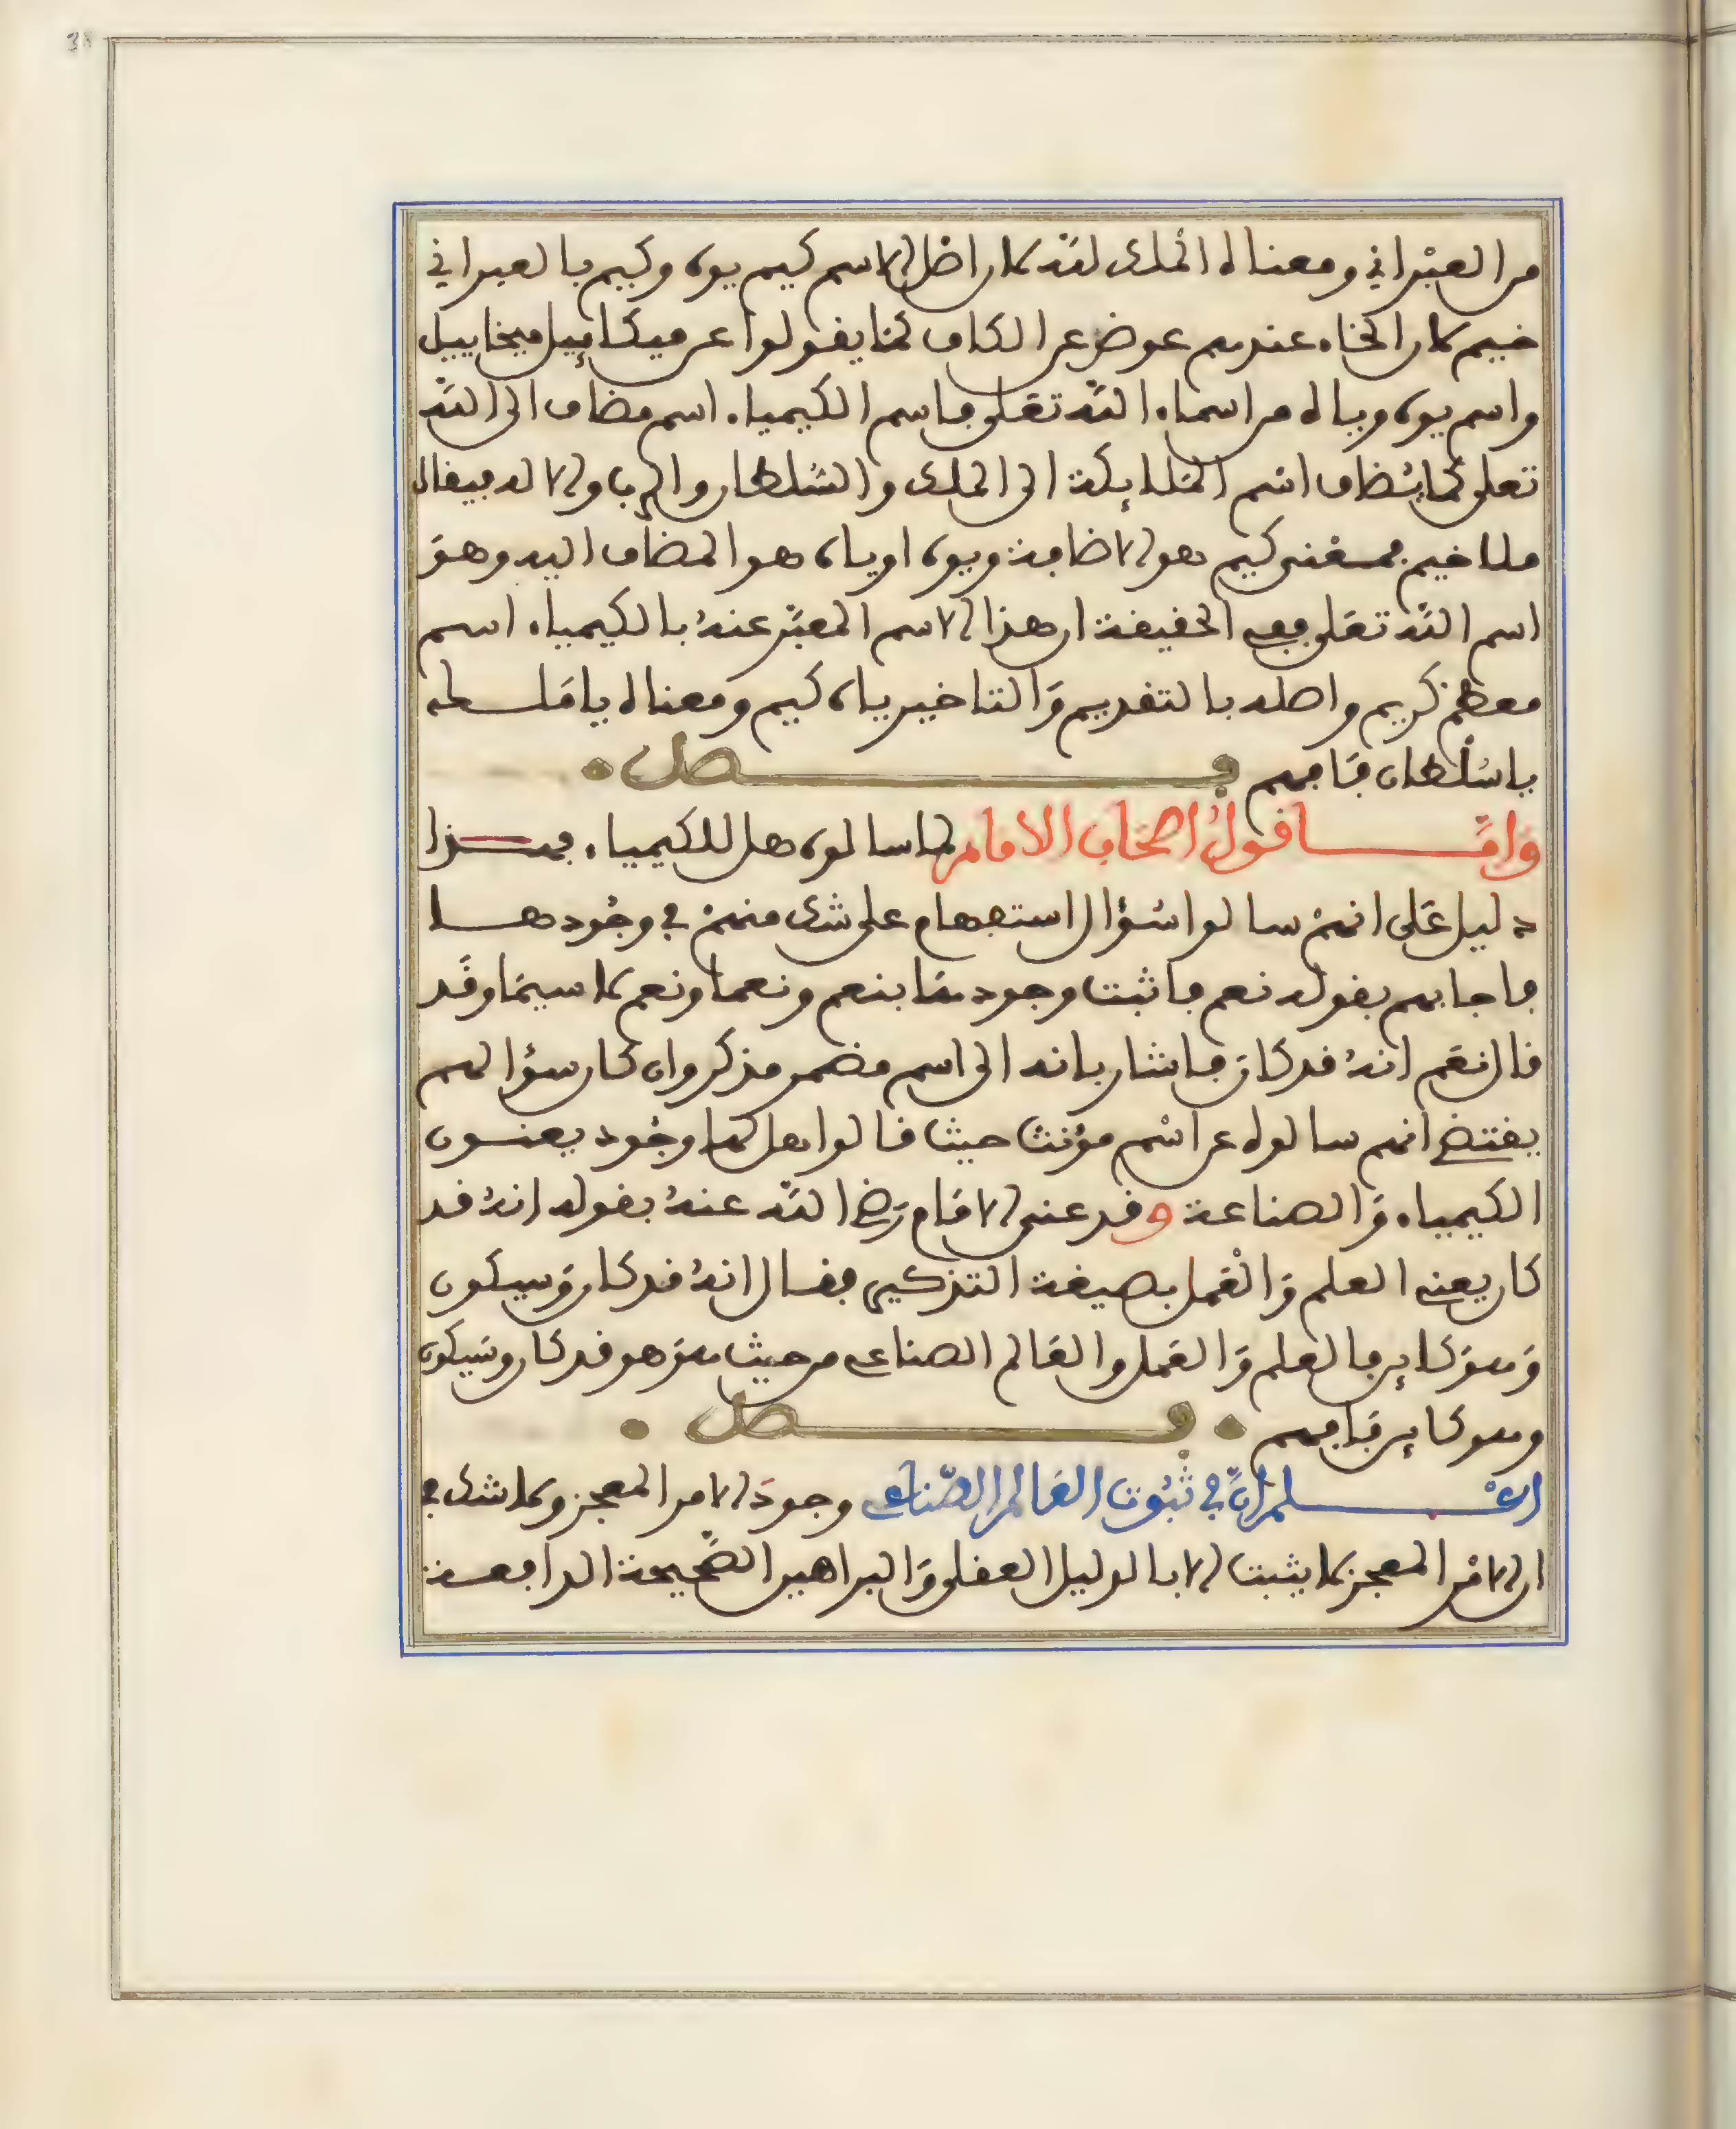 من العبراني ومعناه الملك لله لان اصل الاسم كيم يوه وكيم بالعبراني
خيم لان الخاء عندهم عوض عن الكاف كما يقولوا عن ميكاييل ميخاييل
واسم يوه وياه من اسماء الله تعلى فاسم الكيمياء اسم مضاف الى الله
تعلى كما يُضاف اسم الملايكة الى الملك والسُّلطان والرب والاله فيقال
ملاخيم فمعنى كيم هو الاضافة ويوه او ياه هو المضاف اليه وهوَ
اسم الله تعَلى ففي الحقيقة ان هذا الاسم المعبَّر عنهُ بالكيمياء اسم
معظم كريم واصله بالتقديم وَالتاخير ياه كيم ومعناه يا مَلك
يا سُلطان فَافهم فصل
وَامَّا قولُ اصحاب الامام لما سالوه هل للكيمياء فهذا
دليل عَلى انهمْ سالوا سُؤال استفهام على شك منهمْ في وجُودها
فاجابهم بقوله نعم فاثبت وجودهَا بنعم ونعما ونعم لا سيمَا وقَد
قال نعَم انهُ قد كانَ فاشار بانه الى اسم مضمر مذكر وان كان سؤالهم
يقتضي انهم سالوه عن اسْم مؤنث حيث قالوا هل لها وجُود يعنون
الكيمياء وَالصناعة وقد عنى الامَام رَضي الله عنهُ بقوله انهُ قد
كان يعني العلم وَالعْمل بصيغة التذكير فقال انهُ قد كان وَسيكون
وَهوَ كاين فالعلم وَالعَمل والعَالم الصناعي من حيث هوَ هو قد كان وسَيكون
وهو كاين فَافهم فصل
اعْلم انَّ في ثبُوت العَالم الصّناعي وجودَ الامر المعجز ولا شك في
ان الامْر المعجز لا يثبت الا بالدليل العقلي وَالبراهين الصَّحيحة الدافعة
38